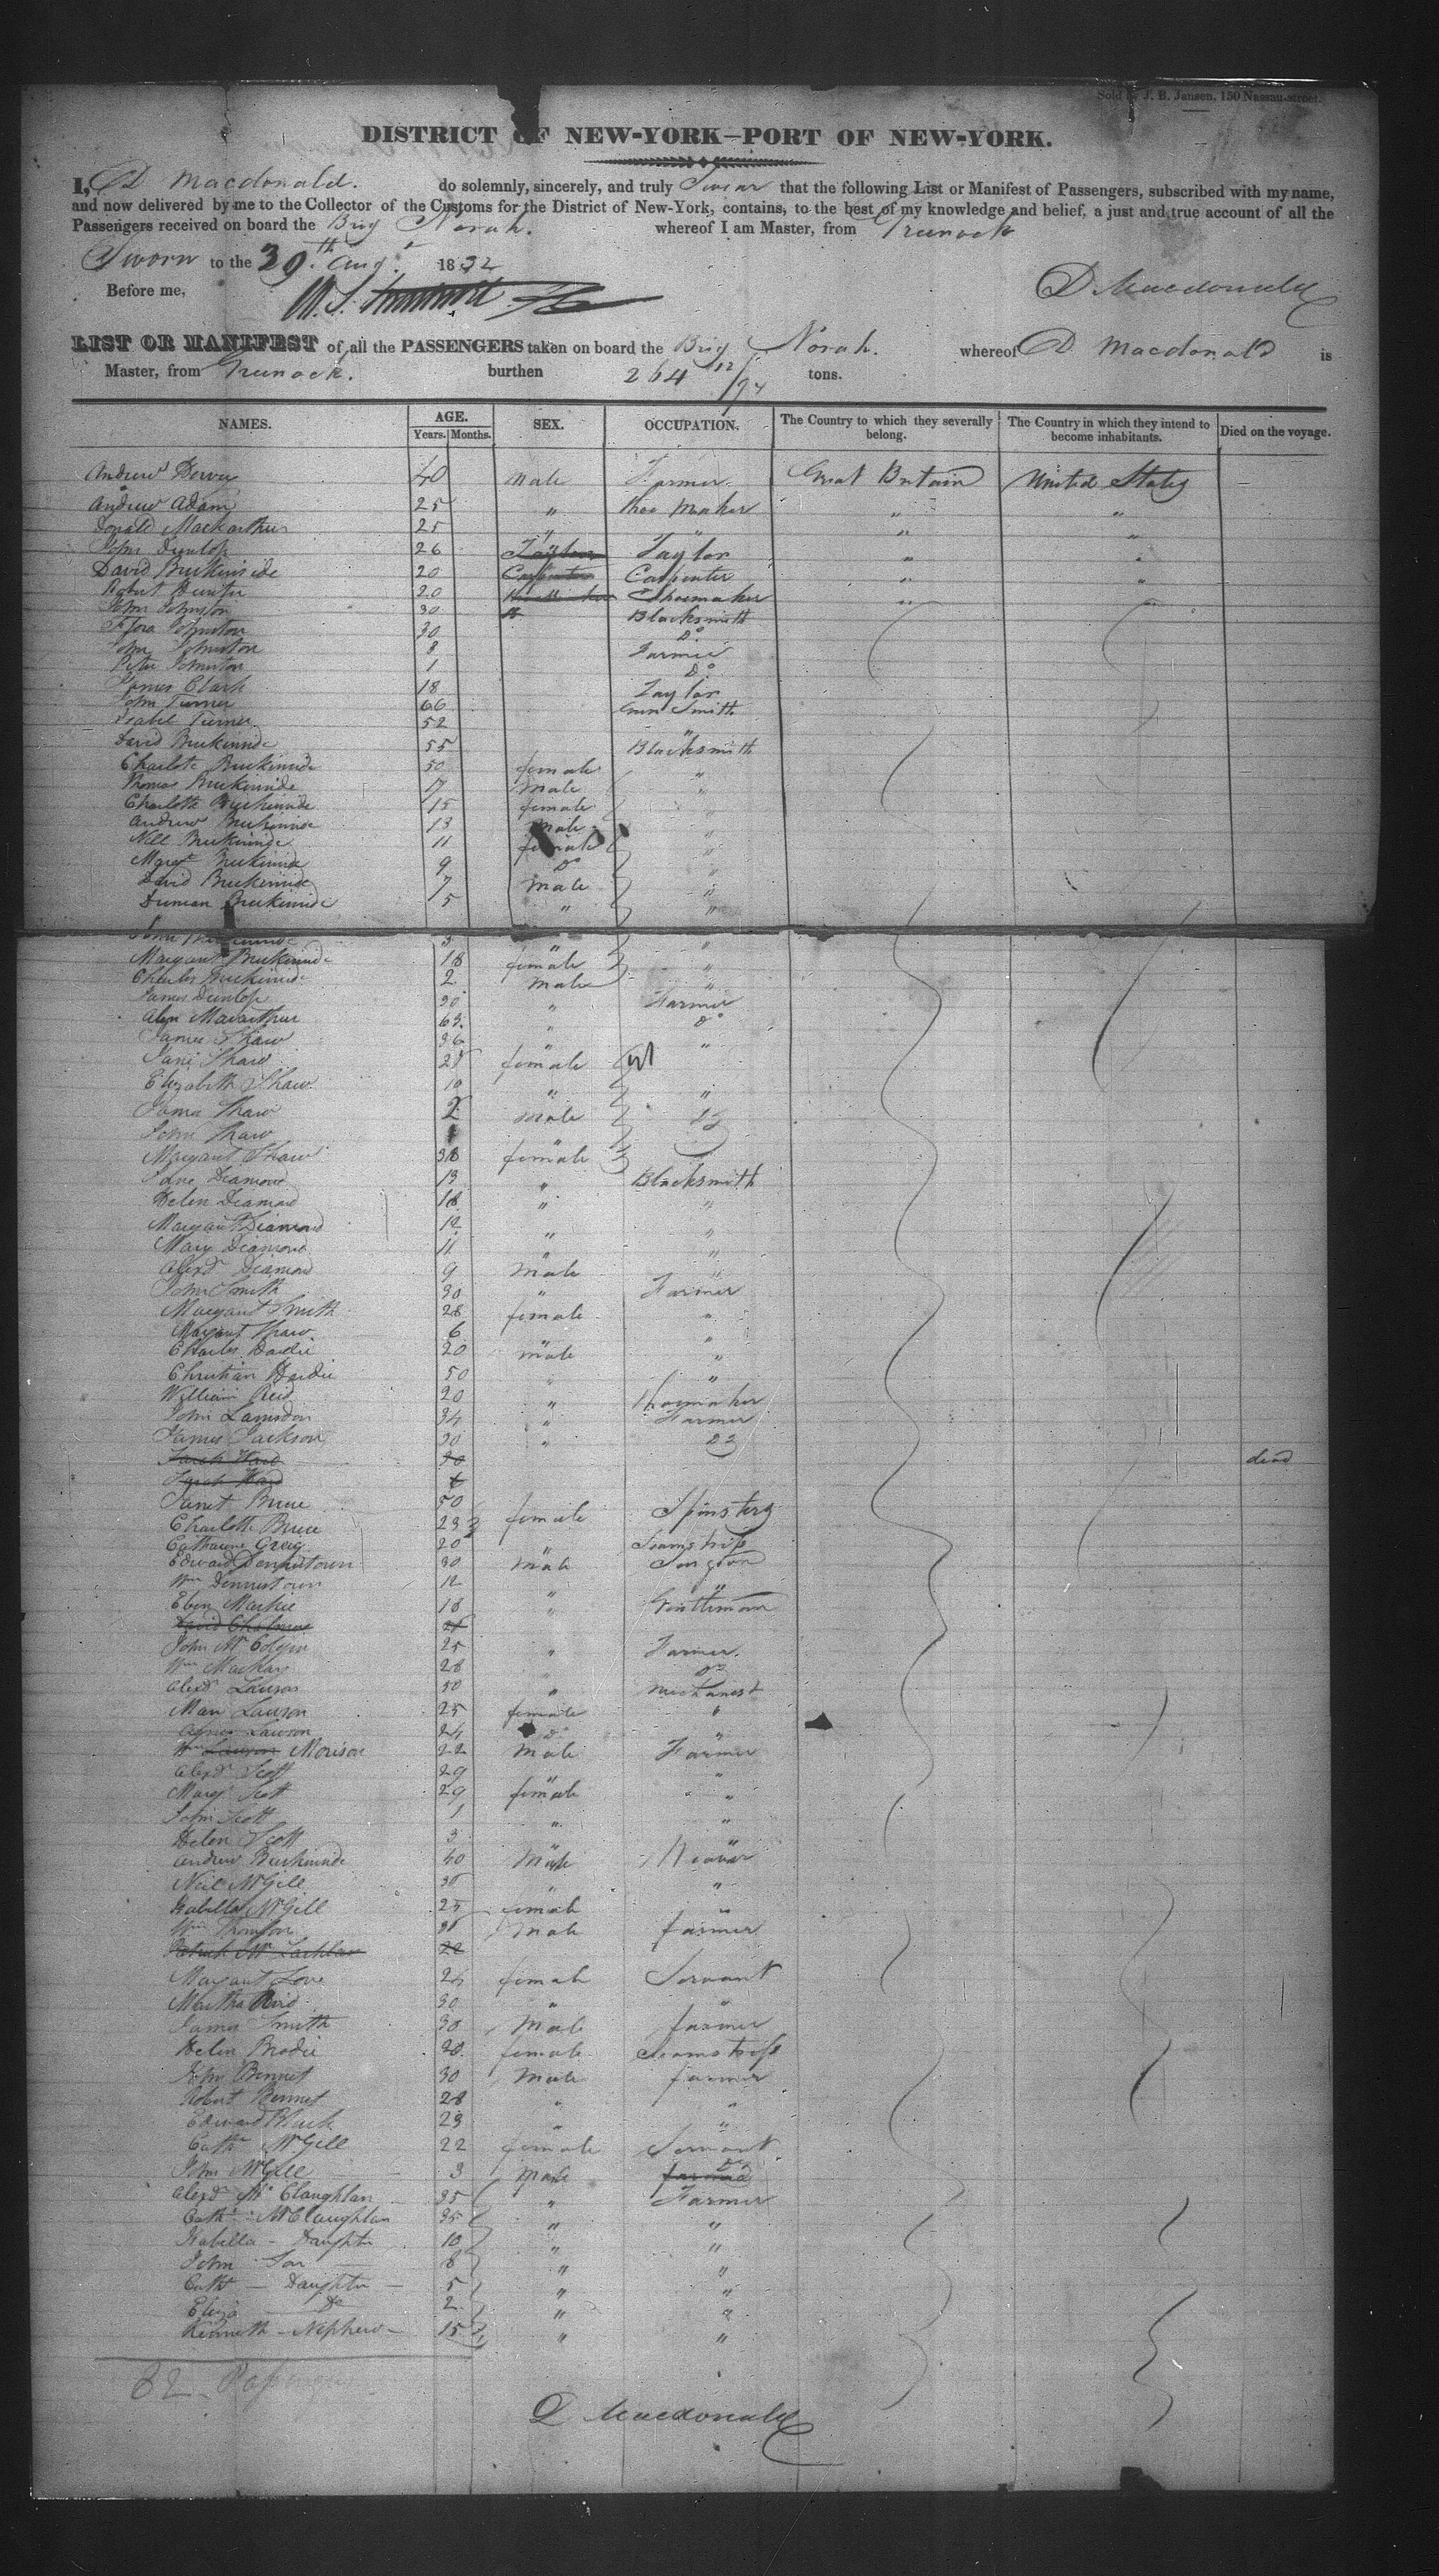 Sold by J. B. Jansen, 150 Nassau-street.
DISTRICT OF NEW-YORK—PORT OF NEW-YORK.
I, D Macdonald. do solemnly, sincerely, and truly Swear that the following List or Manifest of Passengers, subscribed with my name,
and now delivered by me to the Collector of the Customs for the District of New-York, contains, to the best of my knowledge and belief, a just and true account of all the
Passengers received on board the Brig Norah. whereof I am Master, from Greenock
Sworn to the 30th Augt 1832
Before me, D Macdonald
LIST OR MANIFEST of all the PASSENGERS taken on board the Brig Norah. whereof D Macdonald is
Master, from Greenock. burthen 264 12/94 tons.
NAMES. AGE. Years. Months. SEX. OCCUPATION. The Country to which they severally belong. The Country in which they intend to become inhabitants. Died on the voyage.
Andrew 40 Male Farmer. Great Britain United States
Andrew Adam 25 " Shoe Maker " "
Donald Mackarthur 25 " " " "
John Dunlop 26 Taylor Taylor " "
David Breckinride 20 Carpenter Carpenter " "
Robert Hunter 20 Shoemaker " "
John Johnston 30 " Blacksmith
Flora Johnston 30 Do
John Johnston 3 Farmer
Peter Johnston 1 Do
James Clark 18 Taylor
John Turner 66 Gun Smith
Isabel Turner 52 "
David Breckinride 55 Blacksmith
Charlote Breckinride 50 female "
Thomas Breckinride 17 Male "
Charlotte Breckinride 15 female "
Andrew Breckinride 13 Male "
Nell Breckinride 11 female "
Margt Breckinride 9 Do "
David Breckinride 7 Male "
Duncan Breckinride 5 " "
John Breckinride 3 " "
Margaret Breckinride 18 female "
Charles Breckinride 2 Male "
James Dunlop 30 " Farmer
Alexr Macarthur 63 " Do
James Shaw 36 " "
Jane Shaw 28 female
Elizabeth Shaw 10 " "
James Shaw 2 Male
John Shaw
Margaret Shaw 38 female
Jane Diamond 13 " Blacksmith
Helen Diamond 18 " "
Margaret Diamond 12 " "
Mary Diamond 11 " "
Alexr Diamond 9 Male "
John Smith 30 " Farmer
Margaret Smith 28 female "
Margaret Shaw 6 "
Charles Hardie 20 Male "
Christian Hardie 50 " "
William Reid 20 " Shoemaker
John Lamsdon 34 " Farmer
James Jackson 30 " Do
Sarah Ward 30 dead
Sarah Ward
Janet Bruce 50
Charlotte Bruce 23 female Spinsters
Catharine Greig 20 " Seamstress
Edward Dennistown 30 Male Surgeon
Wm Dennistown 12 " "
Eben Mackie 18 " Gentleman
David Chalmers
John Mc Colgin 25 " Farmer.
Wm Mackay 28 Do
Alexr Lawson 50 " Mechanist
Mary Lawson 25 female "
Agnes Lawson 24 Do "
Wm Lawson Morison 22 Male Farmer
Alexr Scott 29 " "
Margt Scott 29 female "
John Scott 1 " "
Helen Scott 3 "
Andrew Breckinride 40 Male Weaver
Neil McGill 30 " "
Isabella McGill 25 female "
Wm Thomson 30 Male farmer
Patrick Mc Lachlan 22
Margaret Love 24 female Servant
Martha Reid 30 " "
James Smith 30 Male farmer
Helen Brodie 20 female Seamstress
John Bennet 30 Male farmer
Robert Bennet 28 " "
Edward Black 23 " "
Cathr McGill 22 female Servant
John McGill 3 Male farmer Do
Alexr Mc Claughlan 35 " Farmer
Cathr McClaughlan 35 " "
Isabella - Daughter 10 " "
John - Son 8 " "
Cathr - Daughter - 5 " "
Eliza Do 2 " "
Kenneth - Nephew - 15 " "
82 Passengers
D Macdonald